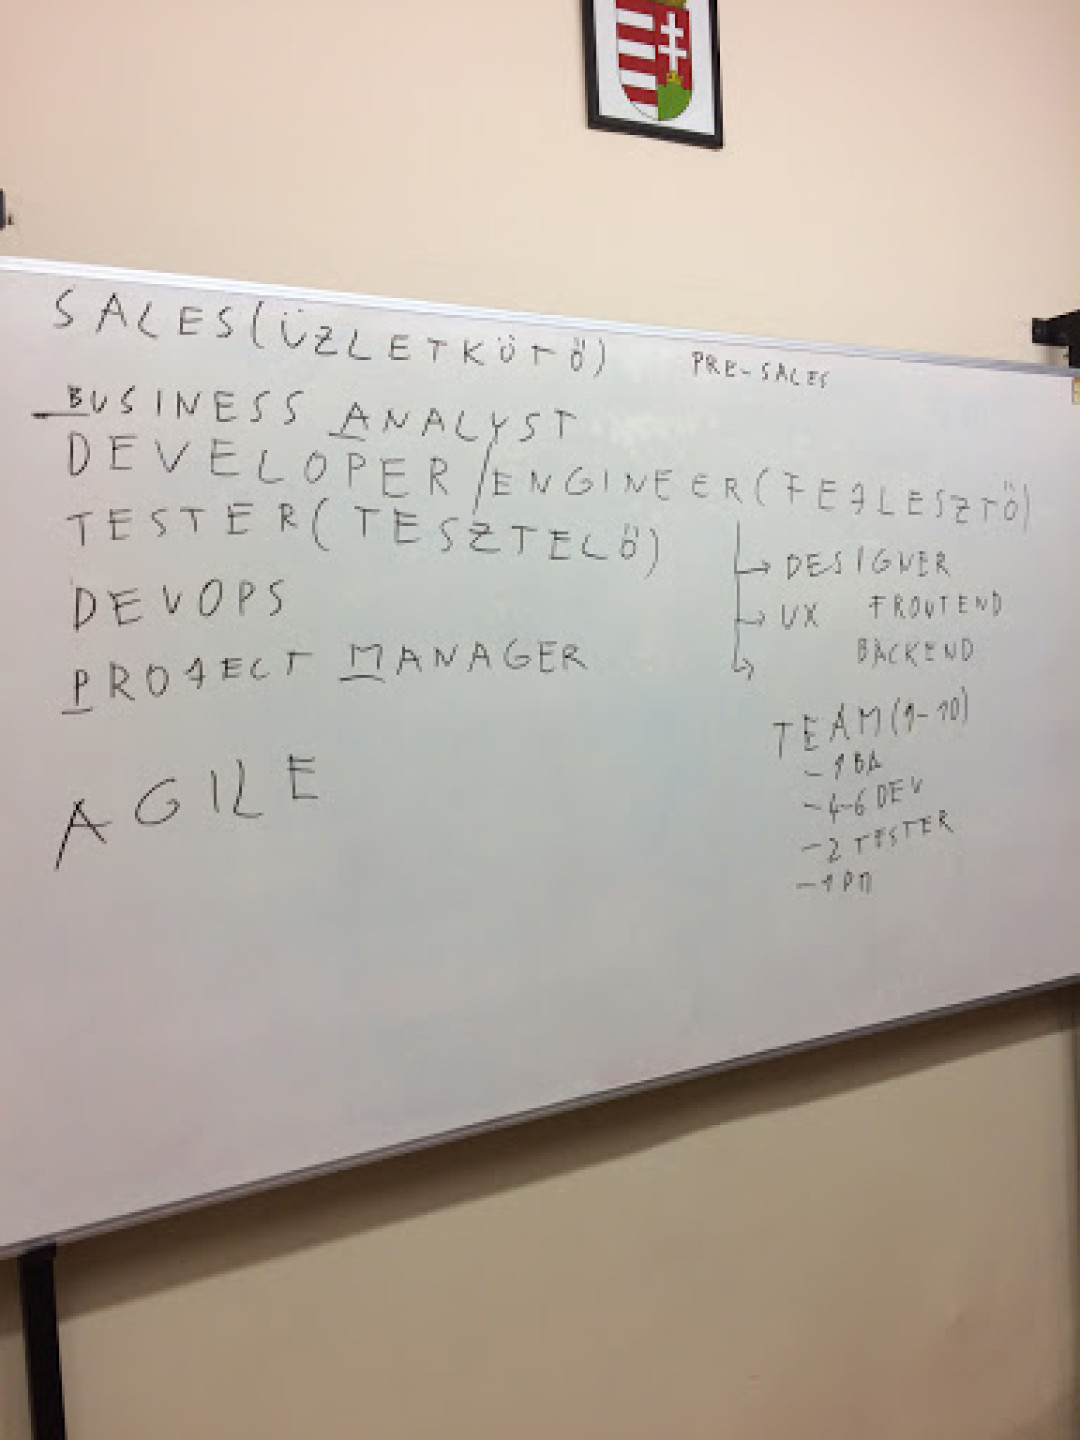 SALES(ÜZLETKÖTŐ) PRE-SALES
BUSINESS ANALYST
DEVELOPER/ENGINEER(FEJLESZTŐ)
TESTER(TESZTELŐ)
DEVOPS
PROJECT MANAGER
AGILE
→ DESIGNER
→ UX FRONTEND
BACKEND
TEAM(9-10)
- 1 BA
- 4-6 DEV
- 2 TESTER
- 1 PM